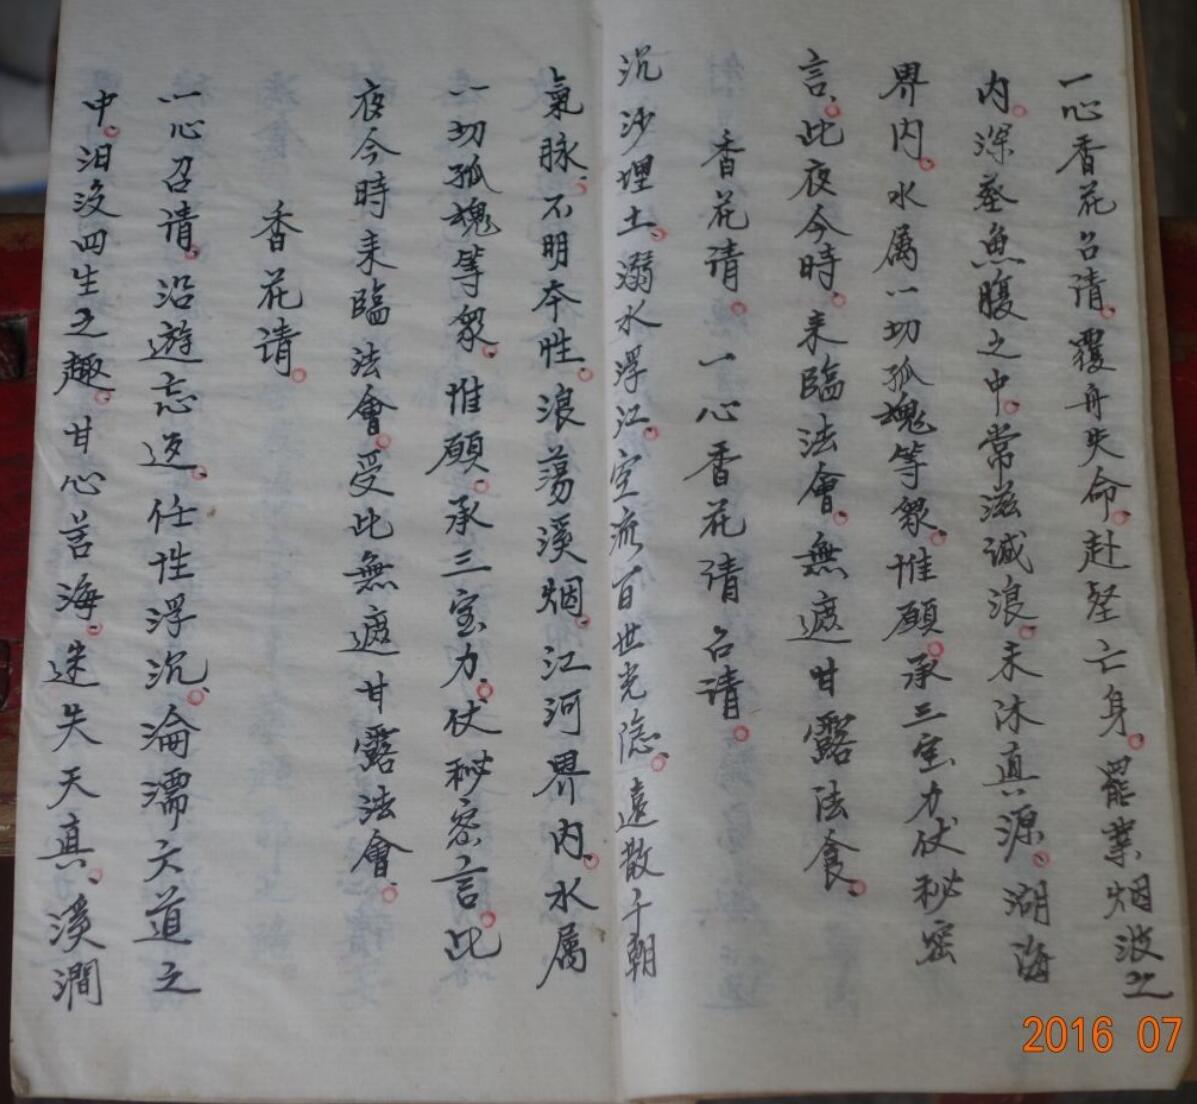 一心香花召请覆舟失命赴壑亡身罷業烟波之
内深葬魚腹之中常滋诚浪未沐真源湖海
界内水属一切孤魂等衆惟願承三宝力伏秘密
言此夜今時来臨法會無遮甘露法食
香花请一心香花请召请
沉沙埋土溺水浮江空流百世光隐遠散千朝
氣脉不明本性浪荡溪烟江河界内水属
一切孤魂等衆惟願承三宝力伏秘密言此
夜今時来臨法會受此無遮甘露法會
香花请
一心召请沿遊忘返任性浮沉淪濡六道之
中汩没四生之趣甘心苦海迷失天真溪澗
2016 07